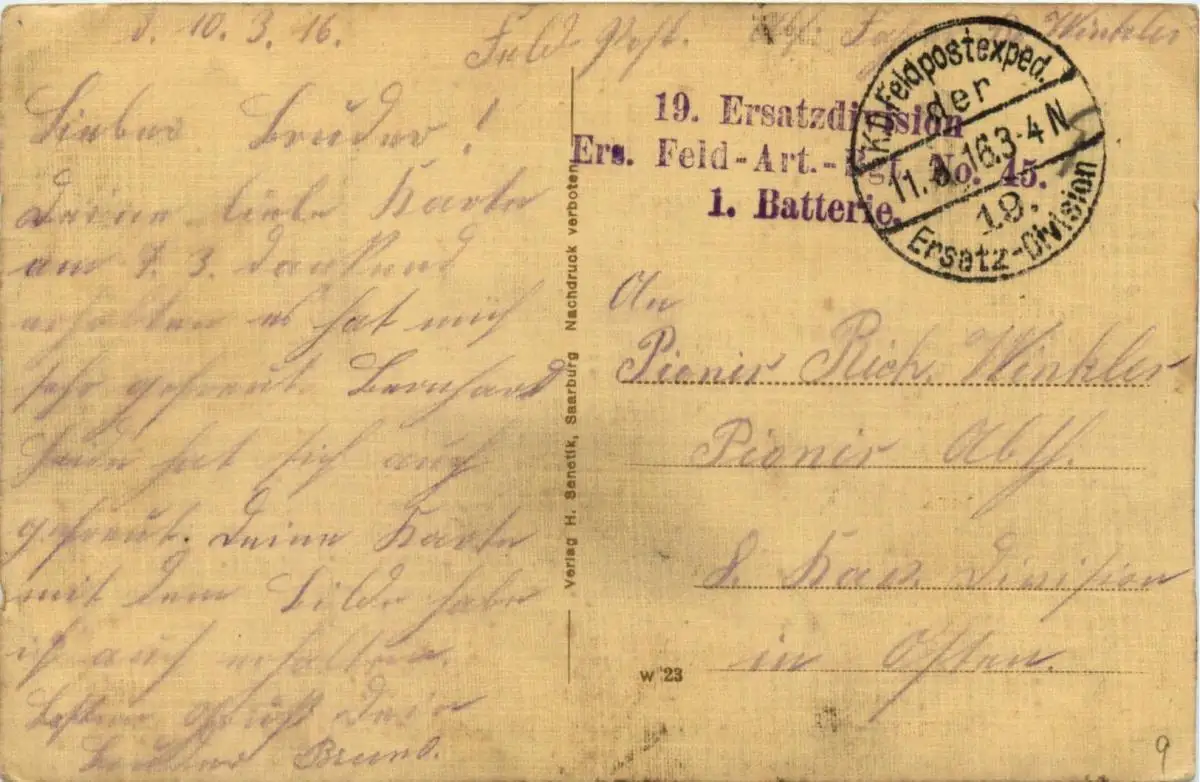 d. 10.3.16.
Feld Post. Abs: Winkler
Lieber Bruder!
Deine liebe Karte
am 7. 3. dankend
erhalten es hat mich
sehr gefreut. Bernhard
hat sich auch
gefreut. Deine Karte
mit dem Bilde habe
ich auch erhalten.
Besten Gruß Dein
Bruder Bruno.
Verlag H. Senetik, Saarburg Nachdruck verboten
19. Ersatzdivision
Ers. Feld-Art.-Rgt. No. 45.
1. Batterie.
K.D. Feldpostexped.
der
11. 3. 16. 3-4 N
19.
Ersatz-Division
An
Pionir Rich. Winkler
Pionir Abth.
8. Kav. Division
in Osten.
W 23
9